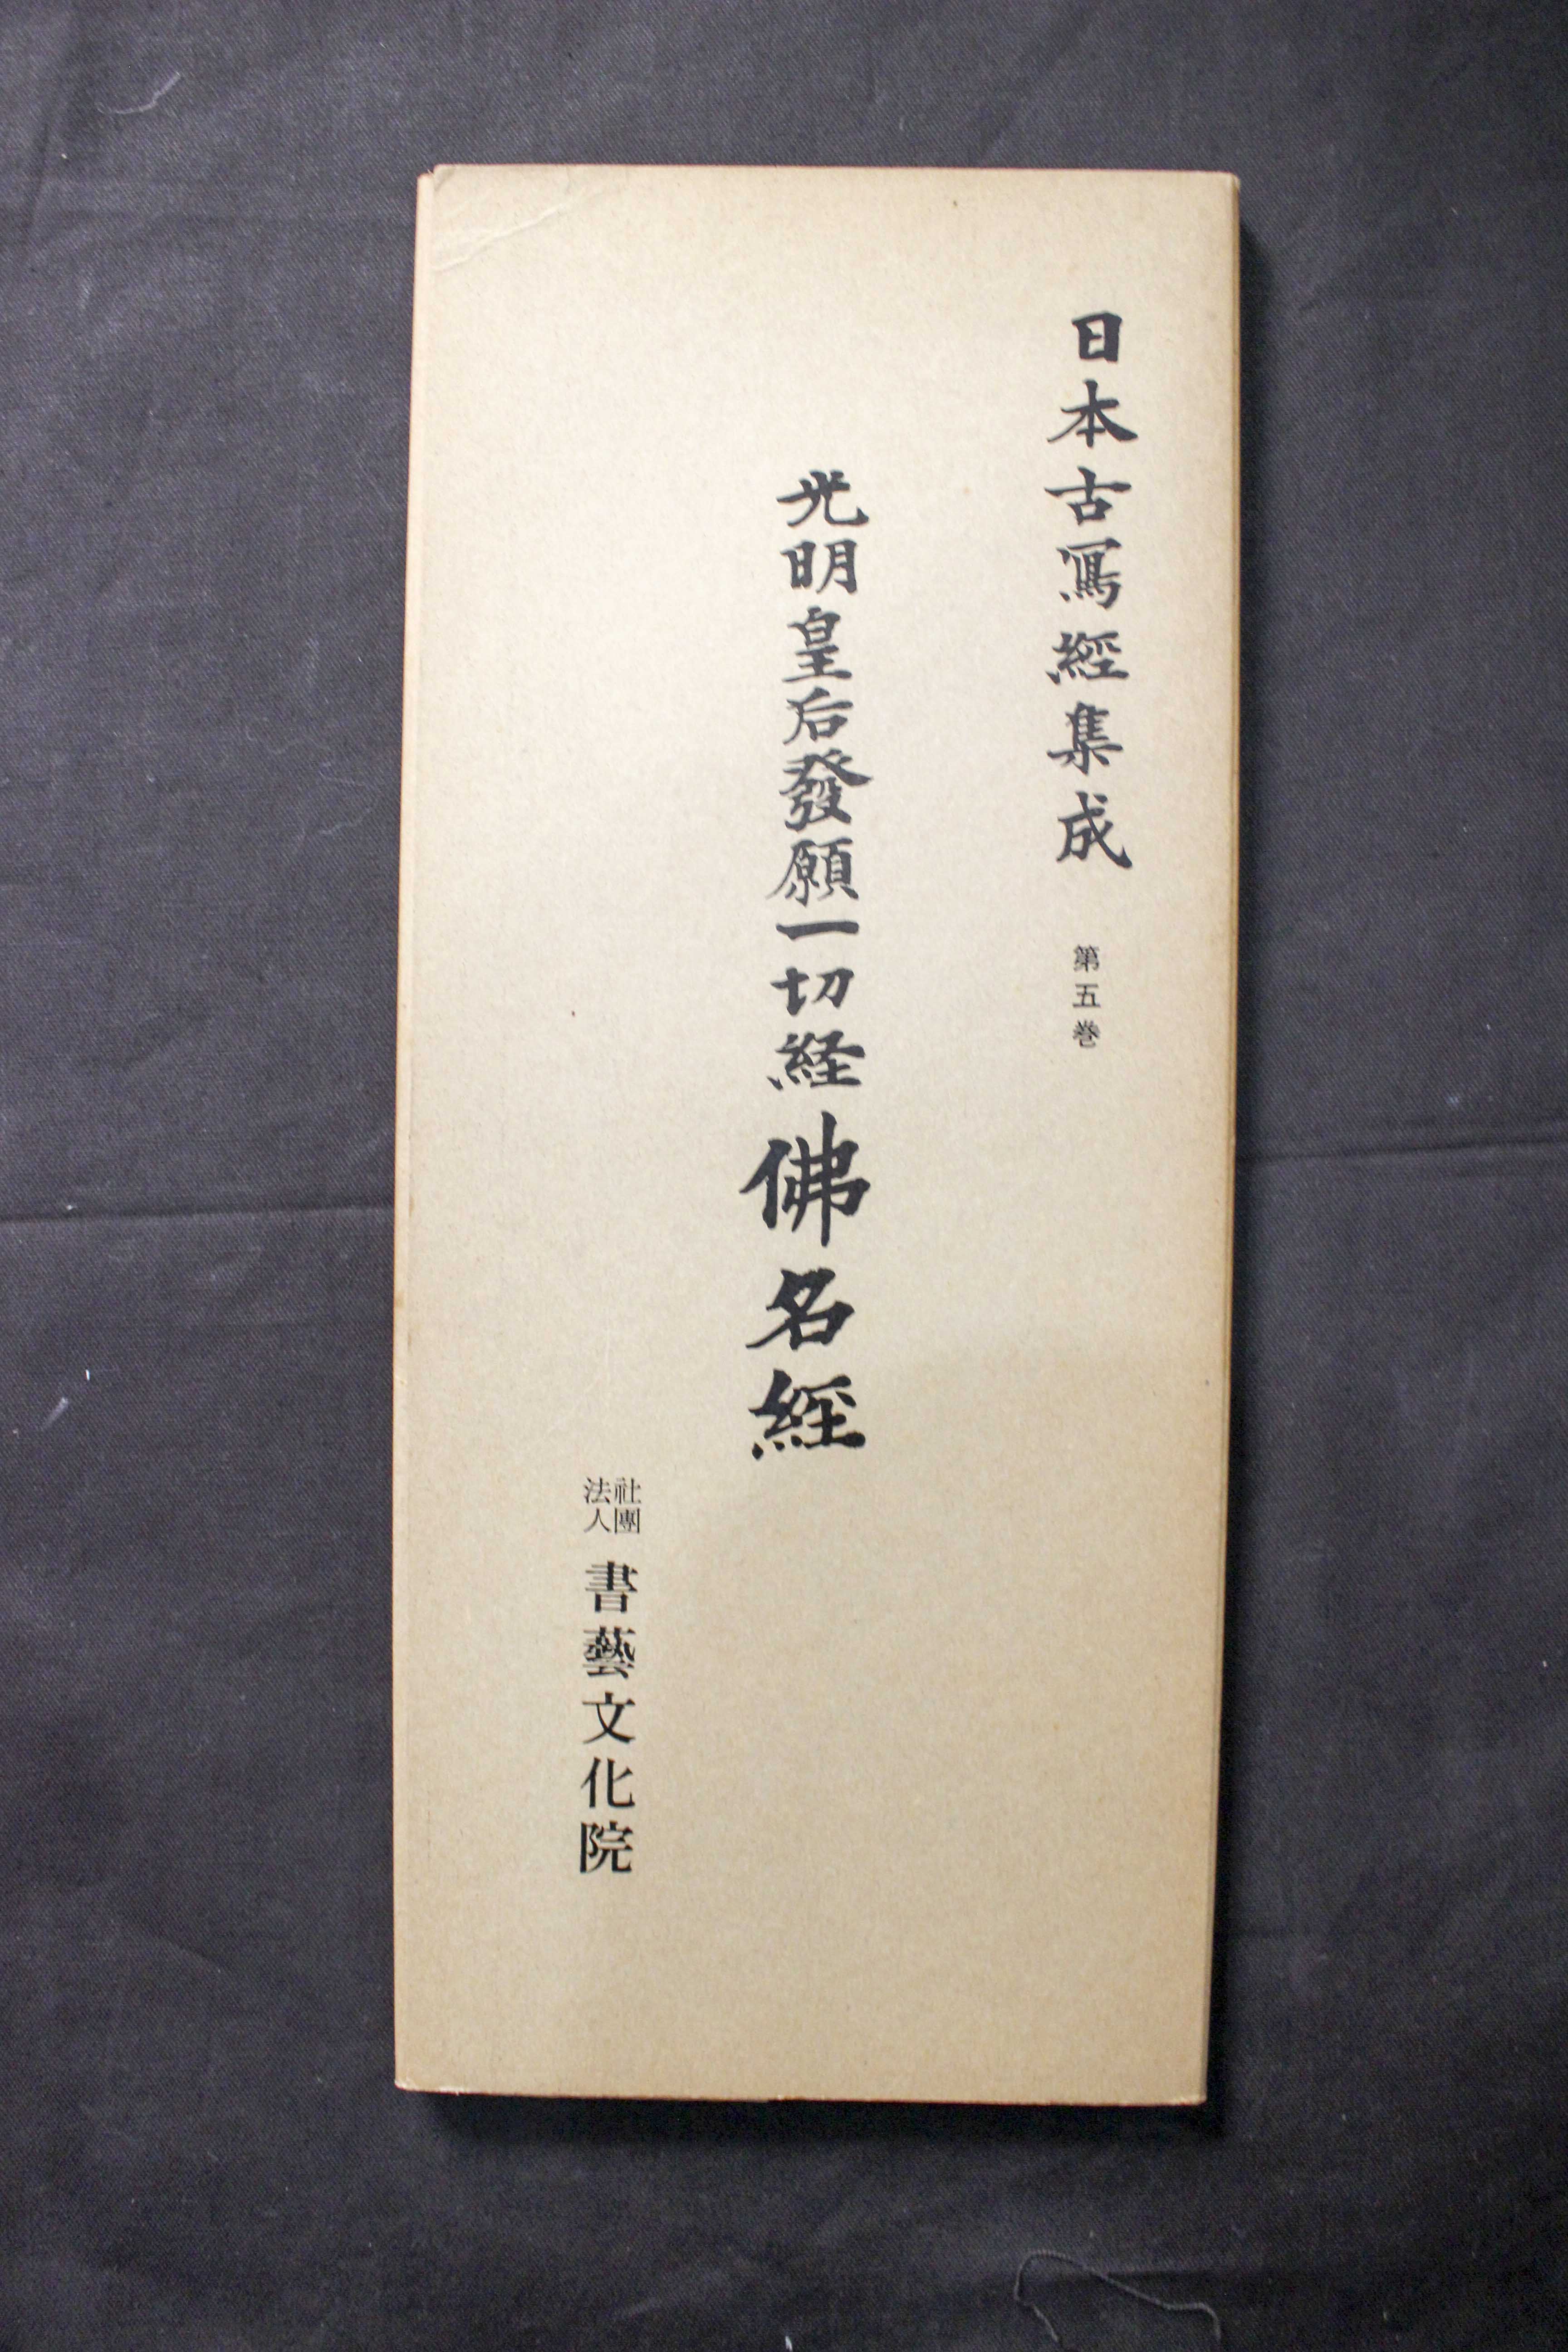 日本古寫經集成 第五巻
光明皇后發願一切経 佛名經
社團法人 書藝文化院